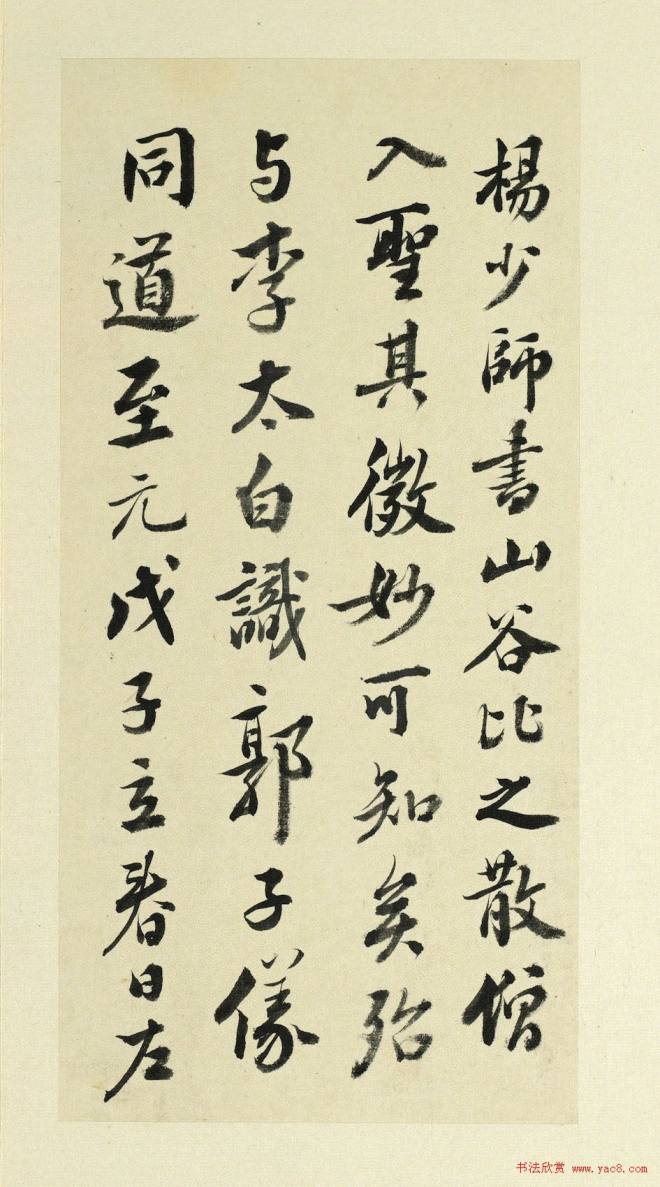 楊少師書山谷比之散僧
入聖其微妙可知矣殆
与李太白識郭子儀
同道至元戊子立春日左
书法欣赏 www.yac8.com